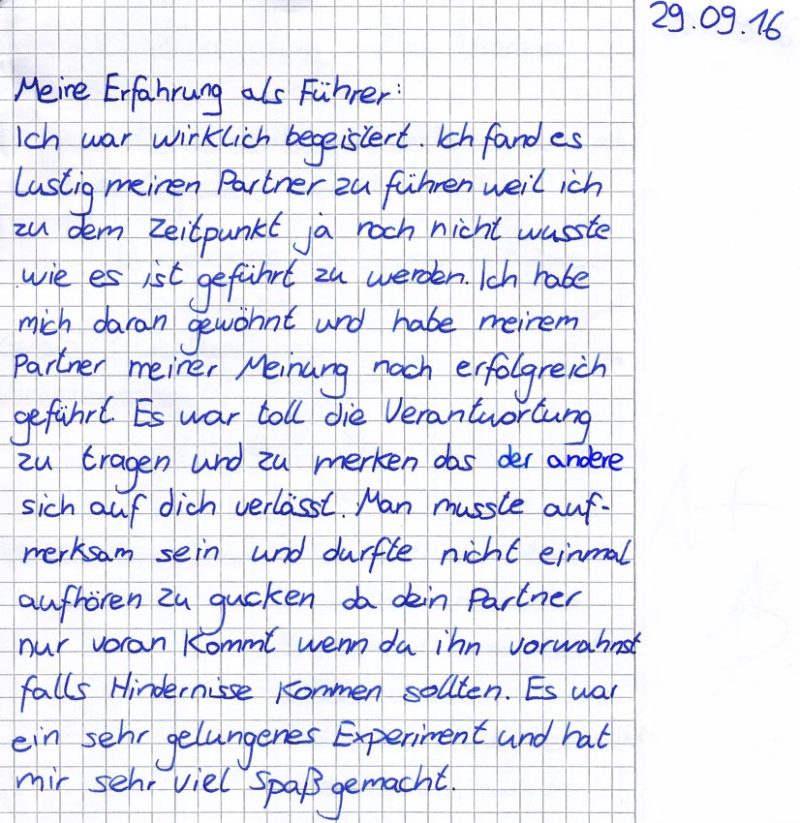 29.09.16
Meine Erfahrung als Führer:
Ich war wirklich begeistert. Ich fand es
lustig meinen Partner zu führen weil ich
zu dem Zeitpunkt ja noch nicht wusste
wie es ist geführt zu werden. Ich habe
mich daran gewöhnt und habe meinem
Partner meiner Meinung nach erfolgreich
geführt. Es war toll die Verantwortung
zu tragen und zu merken das der andere
sich auf dich verlässt. Man musste auf-
merksam sein und durfte nicht einmal
aufhören zu gucken da dein Partner
nur voran kommt wenn du ihn vorwahnst
falls Hindernisse kommen sollten. Es war
ein sehr gelungenes Experiment und hat
mir sehr viel Spaß gemacht.